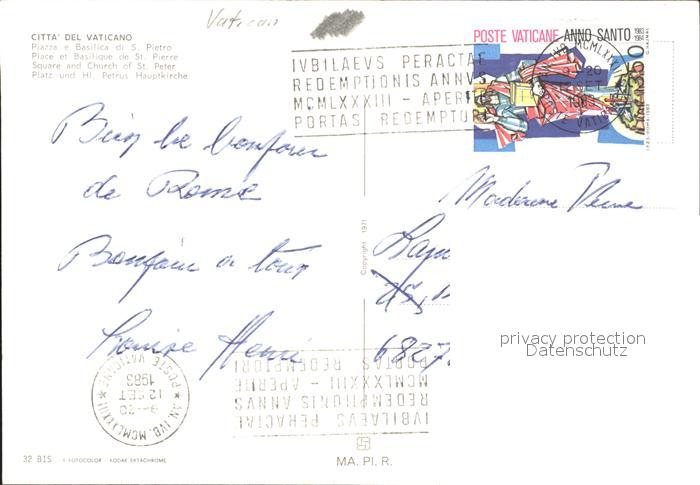 Vatican
CITTA' DEL VATICANO
Piazza e Basilica di S. Pietro
Place et Basilique de St. Pierre
Square and Church of St. Peter
Platz und Hl. Petrus Hauptkirche
POSTE VATICANE ANNO SANTO 1983 1984
IVBILAEVS PERACTAE
REDEMPTIONIS ANNVS
MCMLXXXIII - APERI
PORTAS REDEMPTO
12 SET
1983
350
Bien le bonjour
de Rome
Bonjour a tous
Louise Henri
Madame
6827
Copyright 1971
privacy protection
Datenschutz
AN. IVB. MCMLXXXIII
POSTE VATICANE
9-20
12 SET
1983
IVBILAEVS PERACTAE
REDEMPTIONIS ANNVS
MCMLXXXIII - APERITE
PORTAS REDEMPTORI
32 BIS
FOTOCOLOR - KODAK EKTACHROME
MA. PI. R.